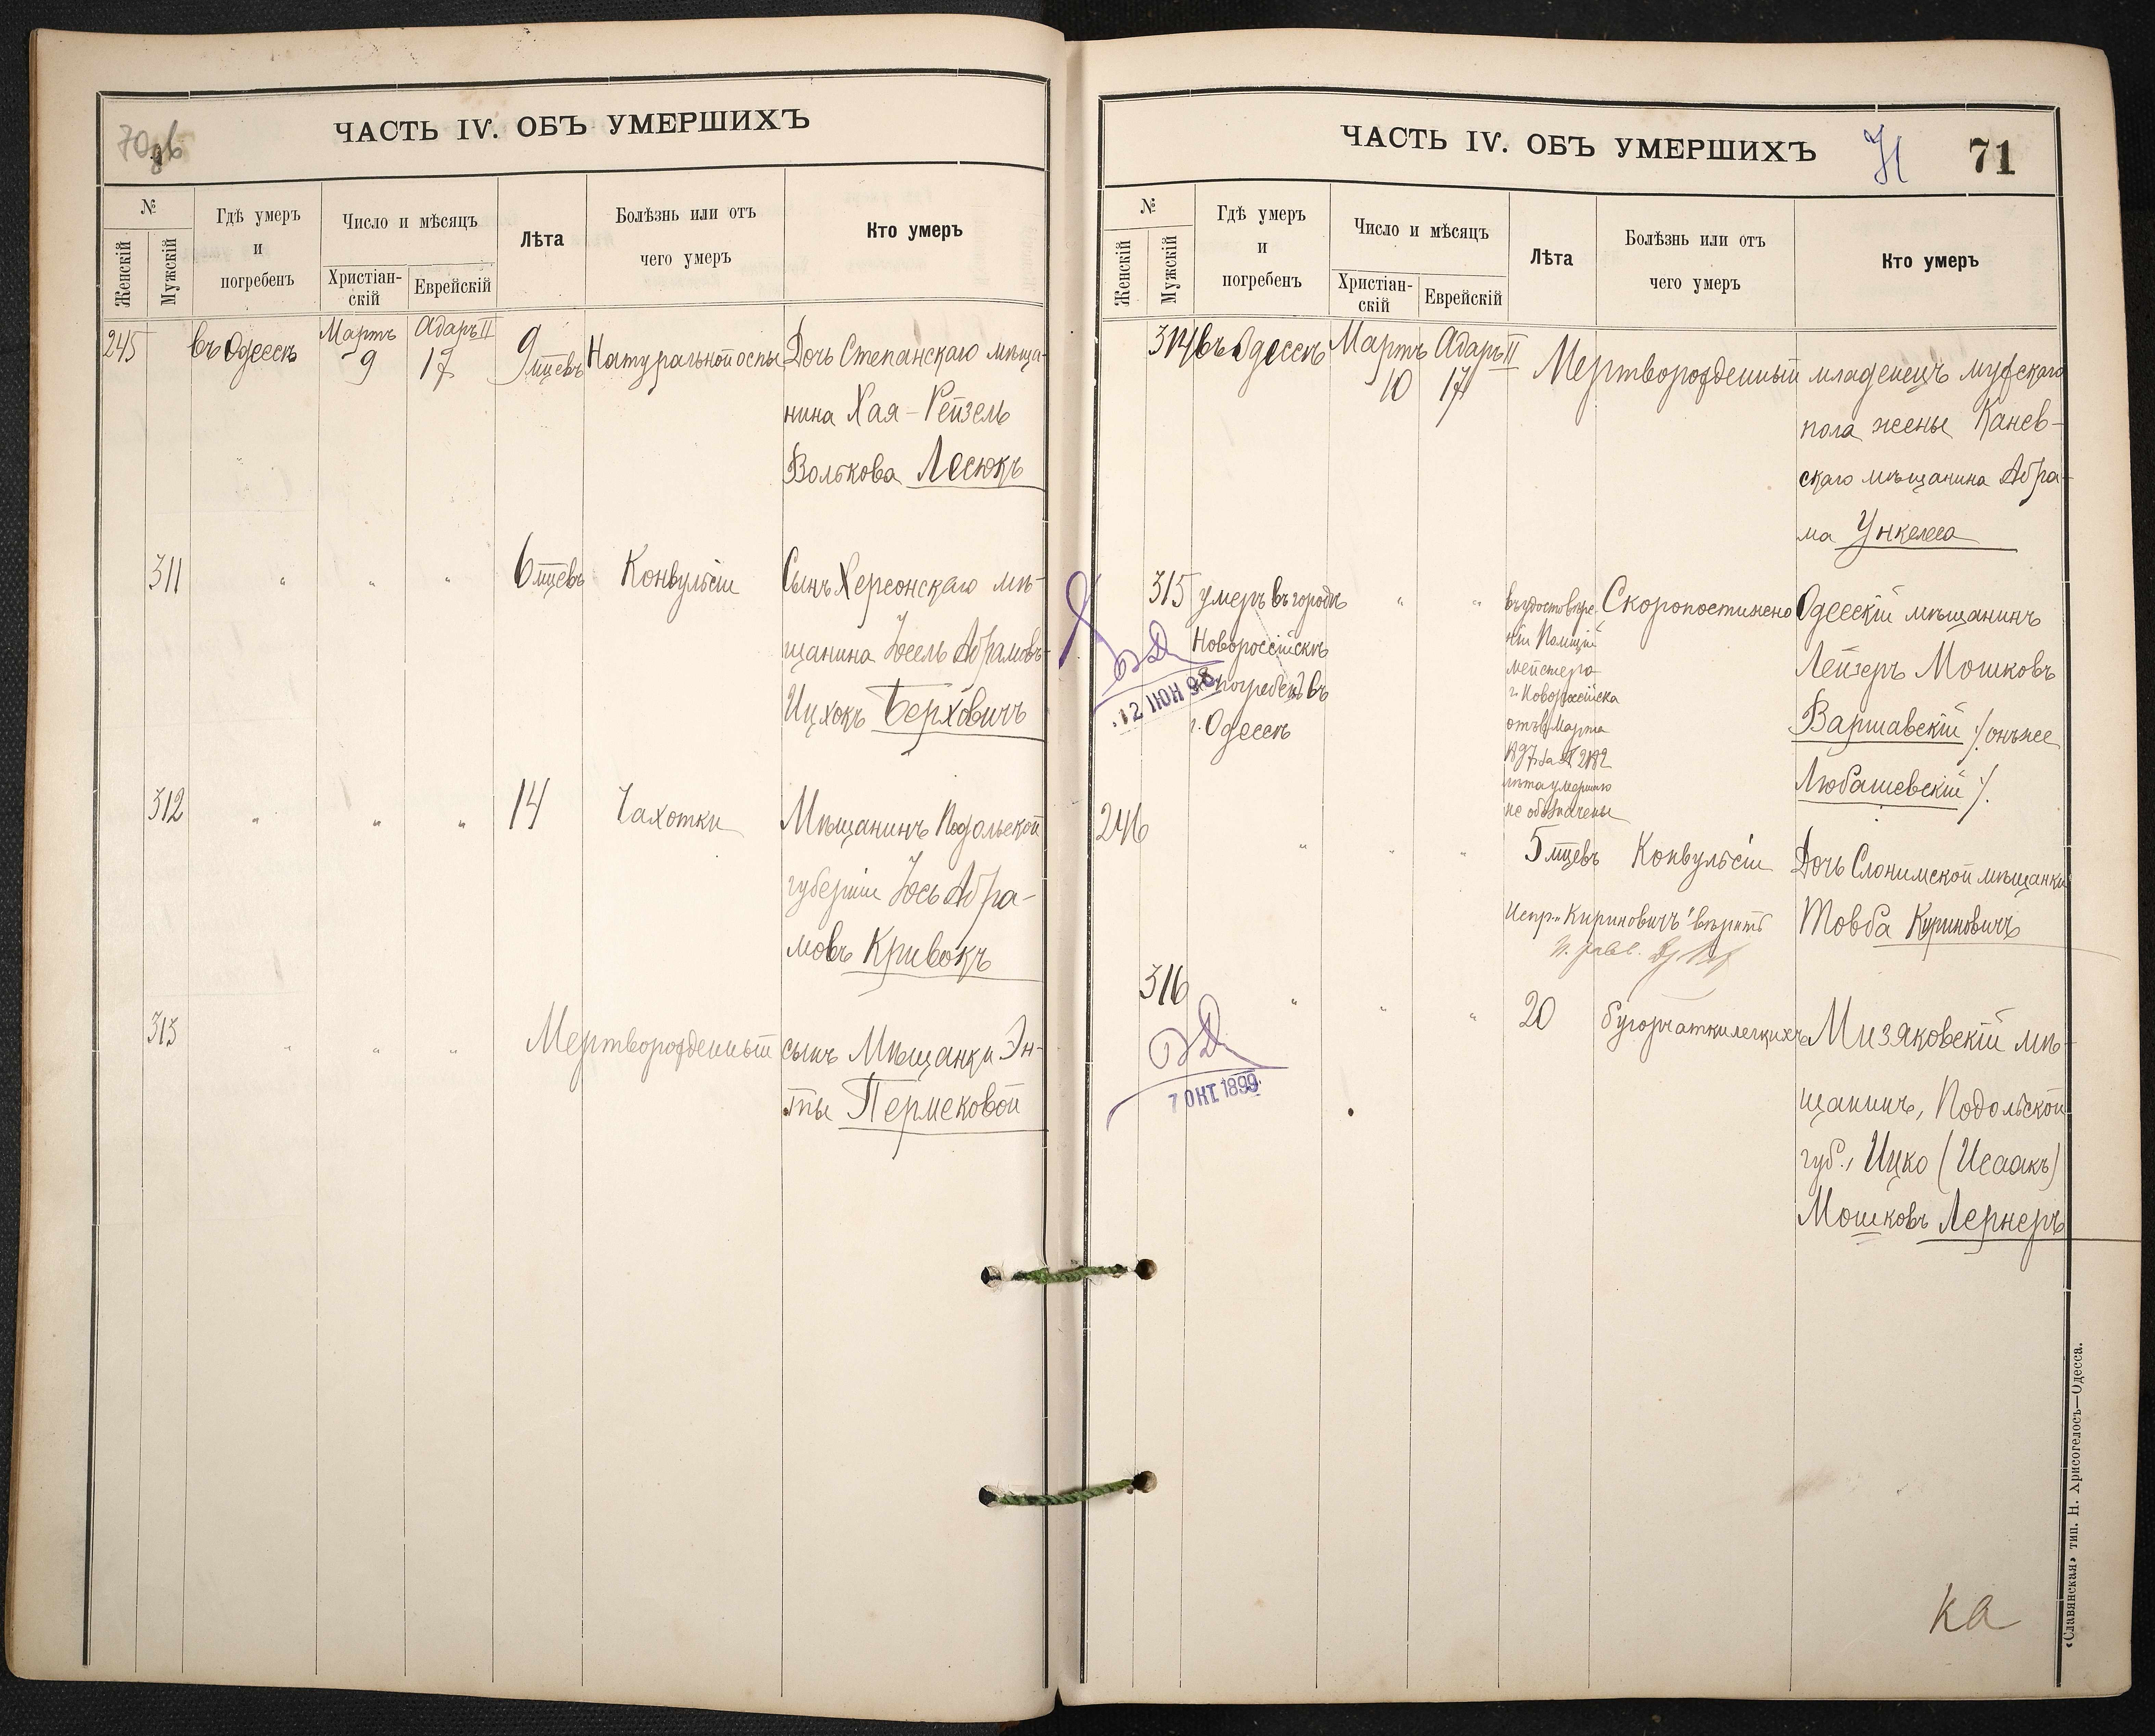 70об
ЧАСТЬ IV. ОБЪ УМЕРШИХЪ
№
Женскій
Мужскій
Гдѣ умеръ
и
погребенъ
Число и мѣсяцъ
Христіан-
скій
Еврейскій
Лѣта
Болѣзнь или отъ
чего умеръ
Кто умеръ
245 въ Одессѣ Мартъ 9 Адаръ II 17 9 мцевъ Натуральной оспы Дочь Степанскаго мѣща-
нина Хая-Рейзель
Волькова Лесюкъ
311 " " " 6 мцевъ Конвульсіи Сынъ Херсонскаго мѣ-
щанина Іосель Абрамовъ-
Ицхокъ Берховичъ
312 " " " 14 Чахотки Мѣщанинъ Подольской
губерніи Іось Абра-
мовъ Кривокъ
313 " " " Мертворожденный сынъ Мѣщанки Эн-
ты Пермековой
ЧАСТЬ IV. ОБЪ УМЕРШИХЪ 71 71
№
Женскій
Мужскій
Гдѣ умеръ
и
погребенъ
Число и мѣсяцъ
Христіан-
скій
Еврейскій
Лѣта
Болѣзнь или отъ
чего умеръ
Кто умеръ
314 въ Одессѣ Мартъ 10 Адаръ II 17 Мертворожденный младенецъ мужскаго
пола жены Канев-
скаго мѣщанина Абра-
маУнкелеса
315 умеръ въ городѣ
Новороссійскѣ
погребенъ въ
г. Одессѣ
" "
въ удостовѣре-
ніи Полиций
мейстера
г. Новороссійска
отъ Марта
1897 за № 2182
лѣта умершаго
не обозначены
Скоропостижно
Одесскій мѣщанинъ
Лейзеръ Мошковъ
Варшавскій /онъ же
Любашевскій/.
12 ІЮН 98
246 " " " 5 мцевъ Конвульсіи Дочь Слонимской мѣщанки
Товба Куриновичъ
Испр. "Кириновичъ" вѣрить
316 " " " 20 бугорчатки легкихъ Мизяковскій мѣ-
щанинъ, Подольской
губ., Ицко (Исаакъ)
Мошковъ Лернеръ
7 ОКТ 1899
ка
«Славянская» тип. Н. Хрисогелосъ—Одесса.